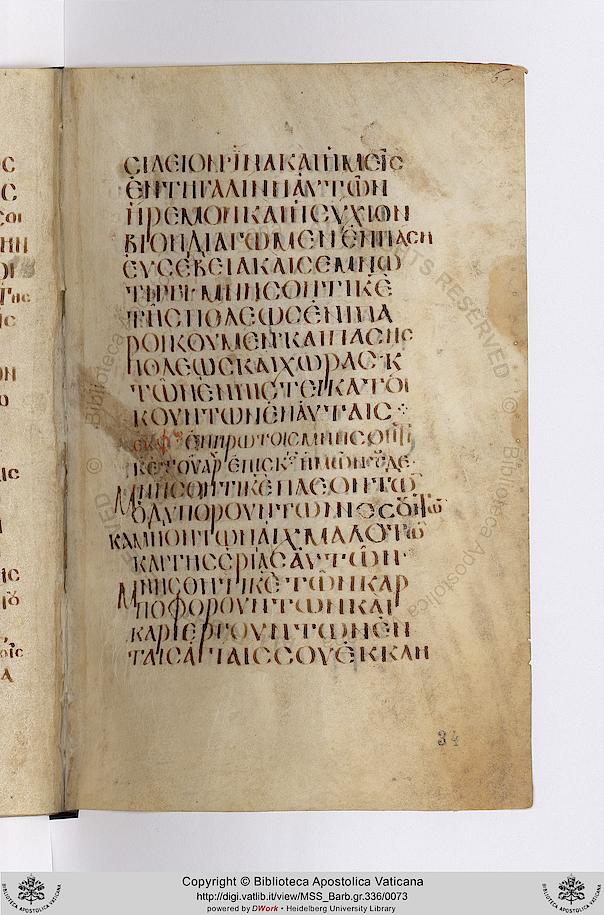 СΙΛΕΙΟΝ ἵΝΑ ΚΑΙ ἡΜΕῖС
ἐΝ ΤΗ ΓΑΛΙΝΗ ΑΥΤῶΝ
ἤΡΕΜΟΝ ΚΑΙ ἡСΥΧΙΟΝ
ΒΙΟΝ ΔΙΑΓωΜΕΝ ἐΝ ΠΑСΗ
ΕΥСΕΒΕΙΑ ΚΑΙ СΕΜΝω
ΤΗΤΙ· ΜΝΗСΘΗΤΙ Κὲ
ΤῆС ΠΟΛΕωС ἐΝ Η ΠΑ
ΡΟΙΚΟΥΜΕΝ ΚΑΙ ΠΑСΗС
ΠΟΛΕωС ΚΑΙ ΧωΡΑС· Κ
ΤωΝ ἐΝ ΠΙСΤΕΙ ΚΑΤΟΙ
ΚΟΥΝΤωΝ ἐΝ ΑΥΤΑΙС
ἐΝ ΠΡωΤΟΙС ΜΝΗСΘΗΤΙ
ΚΕ ΤΟΥ ΑΡ ἐΠΙСΚ ἡΜωΝ
ΜΝΗСΘΗΤΙ Κὲ ΠΛΕΟΝΤω
ὁΔΥΠΟΡΟΥΝΤωΝ ΝΟСΟΥΤω
ΚΑΜΝΟΝΤωΝ ΑἰΧΜΑΛΟΤω
ΚΑΙ ΤΗС СΡΙΑС ΑΥΤῶΝ·
ΜΝΗСΘΗΤΙ Κὲ ΤῶΝ ΚΑΡ
ΠΟΦΟΡΟΥΝΤωΝ ΚΑΙ
ΚΑΛΙΕΡΓΟΥΝΤωΝ ἐΝ
ΤΑΙС ἁΓΙΑΙС СΟΥ ἐΚΚΛΗ
34
Copyright © Biblioteca Apostolica Vaticana
http://digi.vatlib.it/view/MSS_Barb.gr.336/0073
powered by DWork • Heidelberg University Library